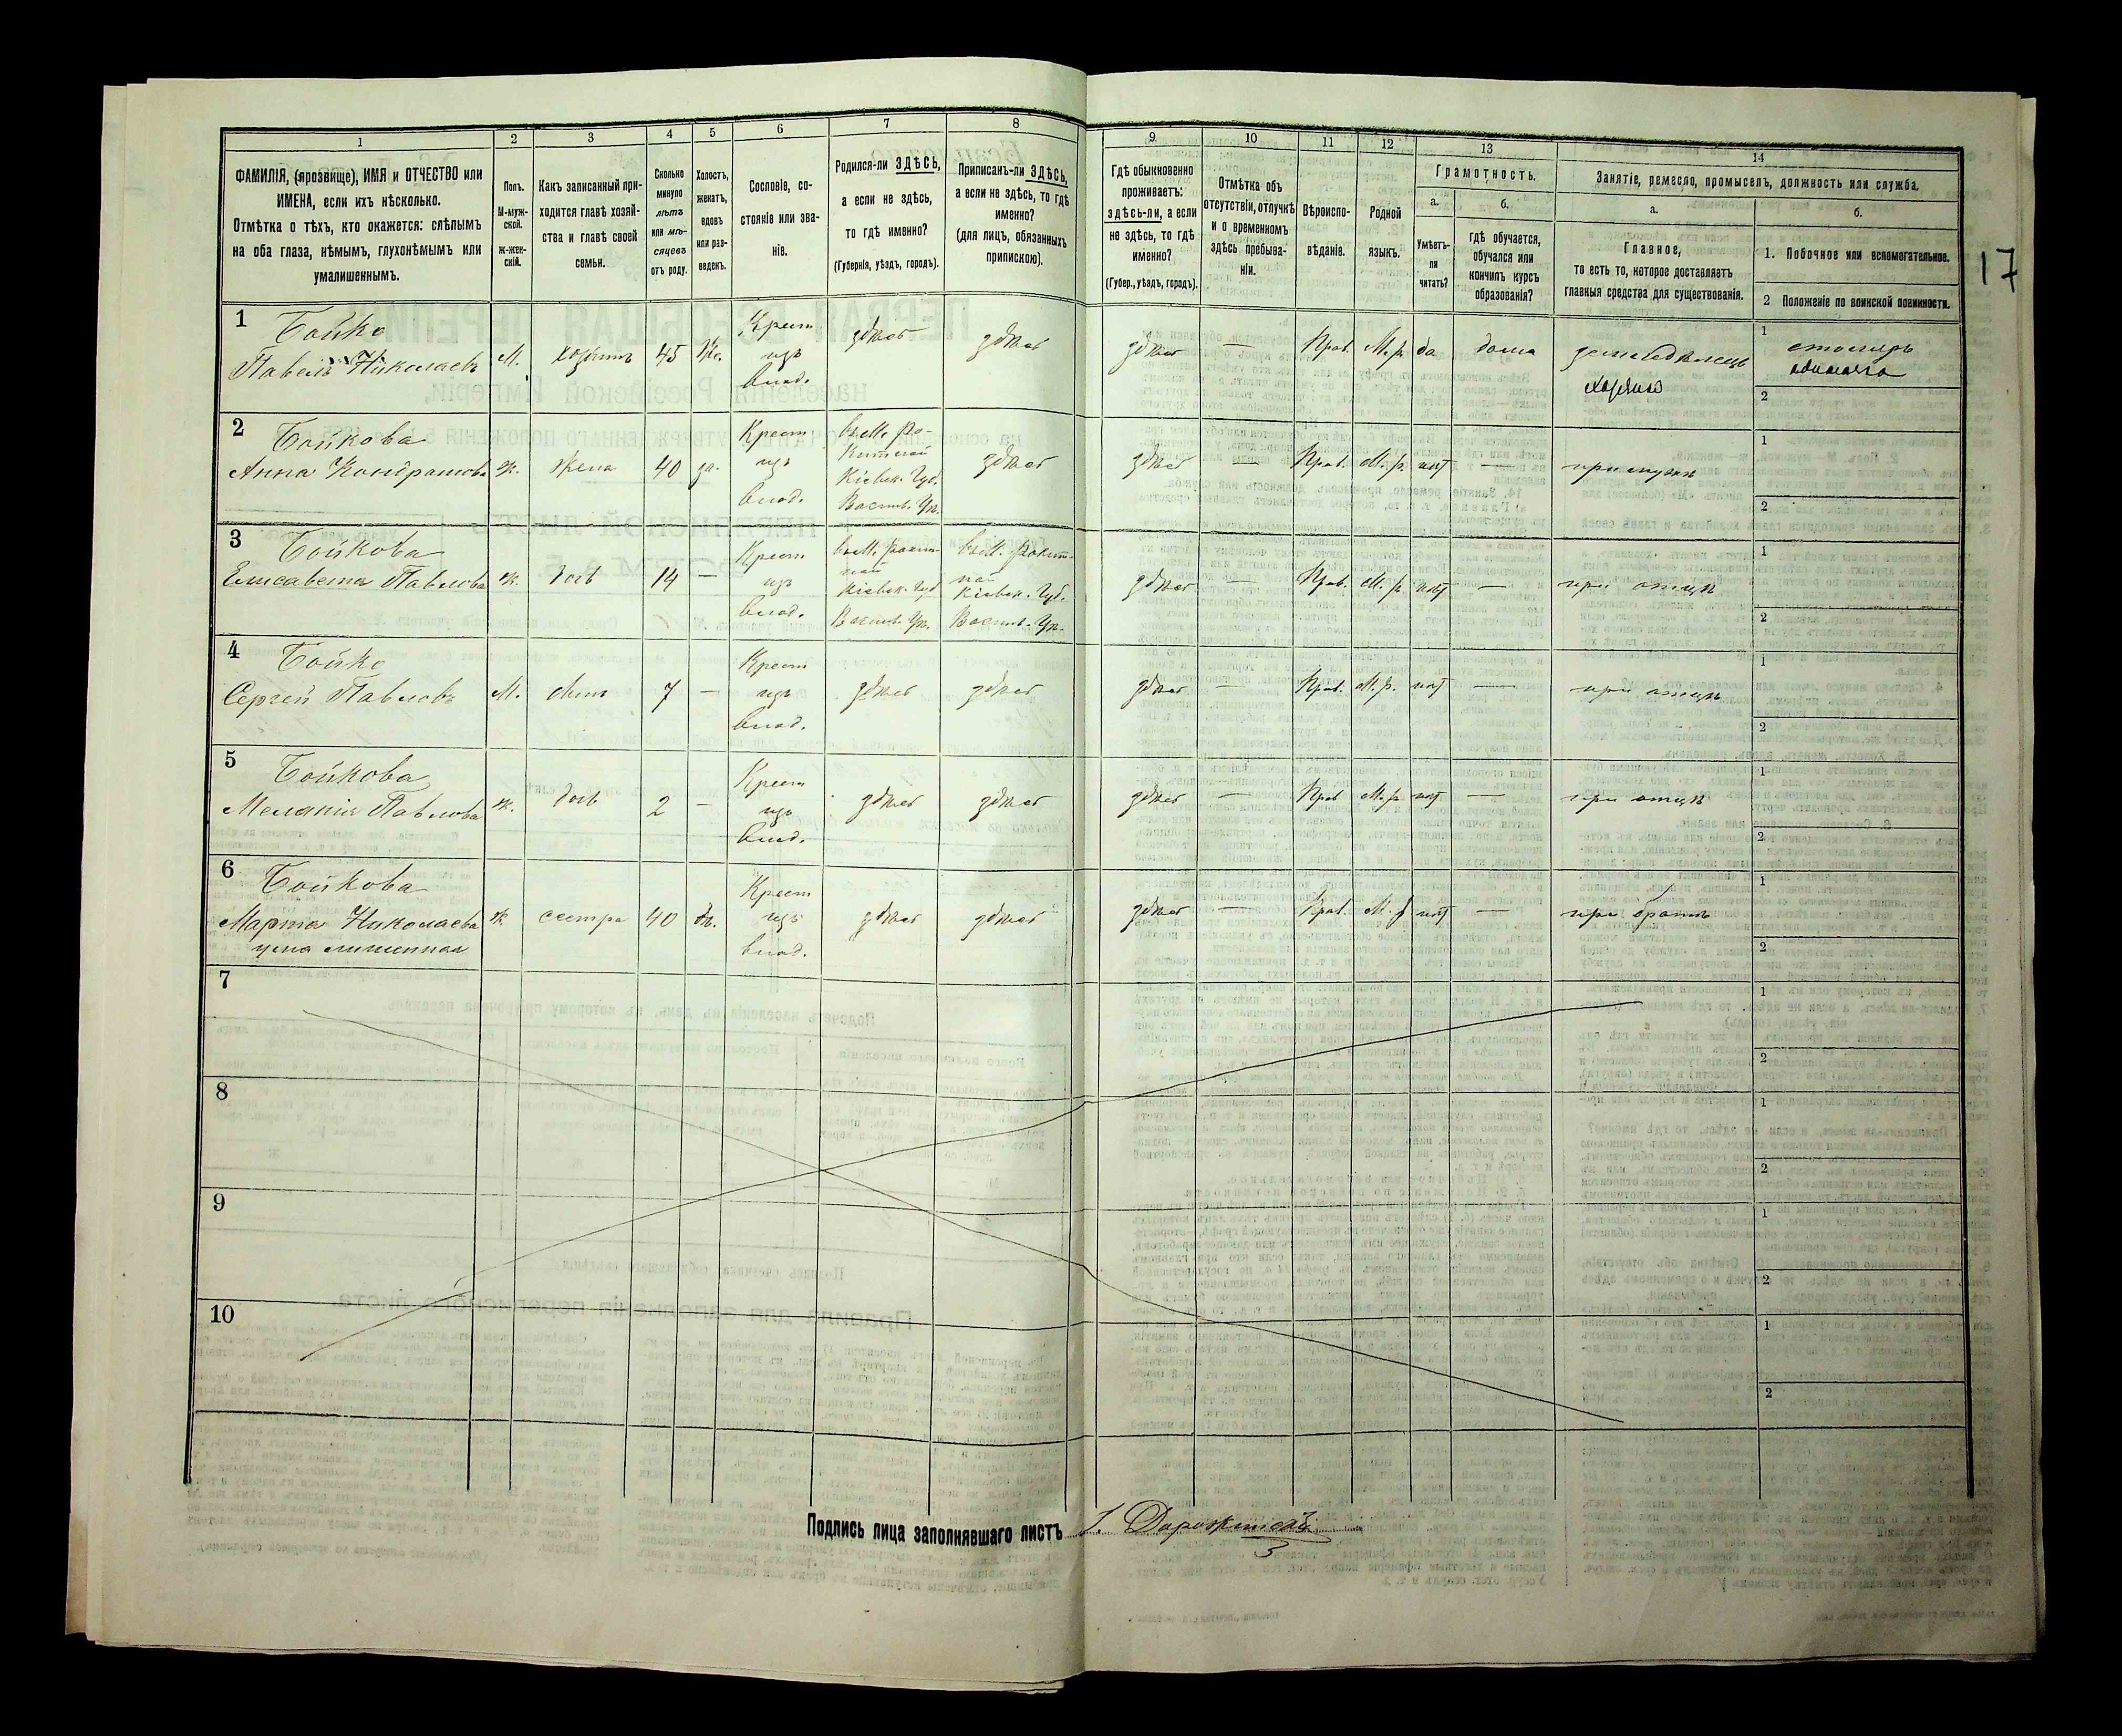 1
2
3
4
5
6
7
8
9
10
11
12
13
14
ФАМИЛІЯ, (прозвище), ИМЯ и ОТЧЕСТВО или
ИМЕНА, если ихъ нѣсколько.
Отмѣтка о тѣхъ, кто окажется: слѣпымъ
на оба глаза, нѣмымъ, глухонѣмымъ или
умалишеннымъ.
Полъ.
М-муж-
ской.
ж-жен-
скій.
Какъ записанный при-
ходится главѣ хозяй-
ства и главѣ своей
семьи.
Сколько
минуло
лѣтъ
или мѣ-
сяцевъ
отъ роду.
Холостъ,
женатъ,
вдовъ
или раз-
веденъ.
Сословіе, со-
стояніе или зва-
ніе.
Родился-ли ЗДѢСЬ,
а если не здѣсь,
то гдѣ именно?
(Губернія, уѣздъ, городъ).
Приписанъ-ли ЗДѢСЬ,
а если не здѣсь, то гдѣ
именно?
(для лицъ, обязанныхъ
припискою).
Гдѣ обыкновенно
проживаетъ:
здѣсь-ли, а если
не здѣсь, то гдѣ
именно?
(Губер., уѣздъ, городъ).
Отмѣтка объ
отсутствіи, отлучкѣ
и о временномъ
здѣсь пребыва-
ніи.
Вѣроиспо-
вѣданіе.
Родной
языкъ.
Грамотность.
а.
Умѣетъ-
ли
читать?
б.
гдѣ обучается,
обучался или
кончилъ курсъ
образованія?
Занятіе, ремесло, промыселъ, должность или служба.
а.
Главное,
то есть то, которое доставляетъ
главныя средства для существованія.
б.
1. Побочное или вспомогательное.
2 Положеніе по воинской повинности.
17
1
Бойко
Павелъ Николаевъ
М.
хозяинъ
45
Же.
Крест
изъ
влад.
здѣсь
здѣсь
здѣсь
—
Прав.
М. р.
да
дома
земледѣлецъ
хозяинъ
1
столяръ
2
2
Бойкова
Анна Кондратова
ж.
жена
40
за.
Крест
изъ
влад.
въ М. Ро-
китной
Кіевск. Губ.
Васильк. Уѣ.
здѣсь
здѣсь
—
Прав.
М. р.
нѣт
—
при мужѣ
1
2
3
Бойкова
Елисавета Павлова
ж.
дочь
14
—
Крест
изъ
влад.
въ М. Рокит-
ной
Кіевск. Губ.
Васильк. Уѣ.
въ М. Рокит-
ной
Кіевск. Губ.
Васильк. Уѣ.
здѣсь
—
Прав.
М. р.
нѣт
—
при отцѣ
1
2
4
Бойко
Сергей Павловъ
М.
сынъ
7
—
Крест
изъ
влад.
здѣсь
здѣсь
здѣсь
—
Прав.
М. р.
нѣт
—
при отцѣ
1
2
5
Бойкова
Меланія Павлова
ж.
дочь
2
—
Крест
изъ
влад.
здѣсь
здѣсь
здѣсь
—
Прав
М. р.
нѣт
—
при отцѣ
1
2
6
Бойкова
Марта Николаева
ума лишенная
ж
сестра
40
дѣ.
Крест
изъ
влад.
здѣсь
здѣсь
здѣсь
—
Прав.
М. р
нѣт
—
при братѣ
1
2
7
1
2
8
1
2
9
1
2
10
1
2
Подпись лица заполнявшаго листъ